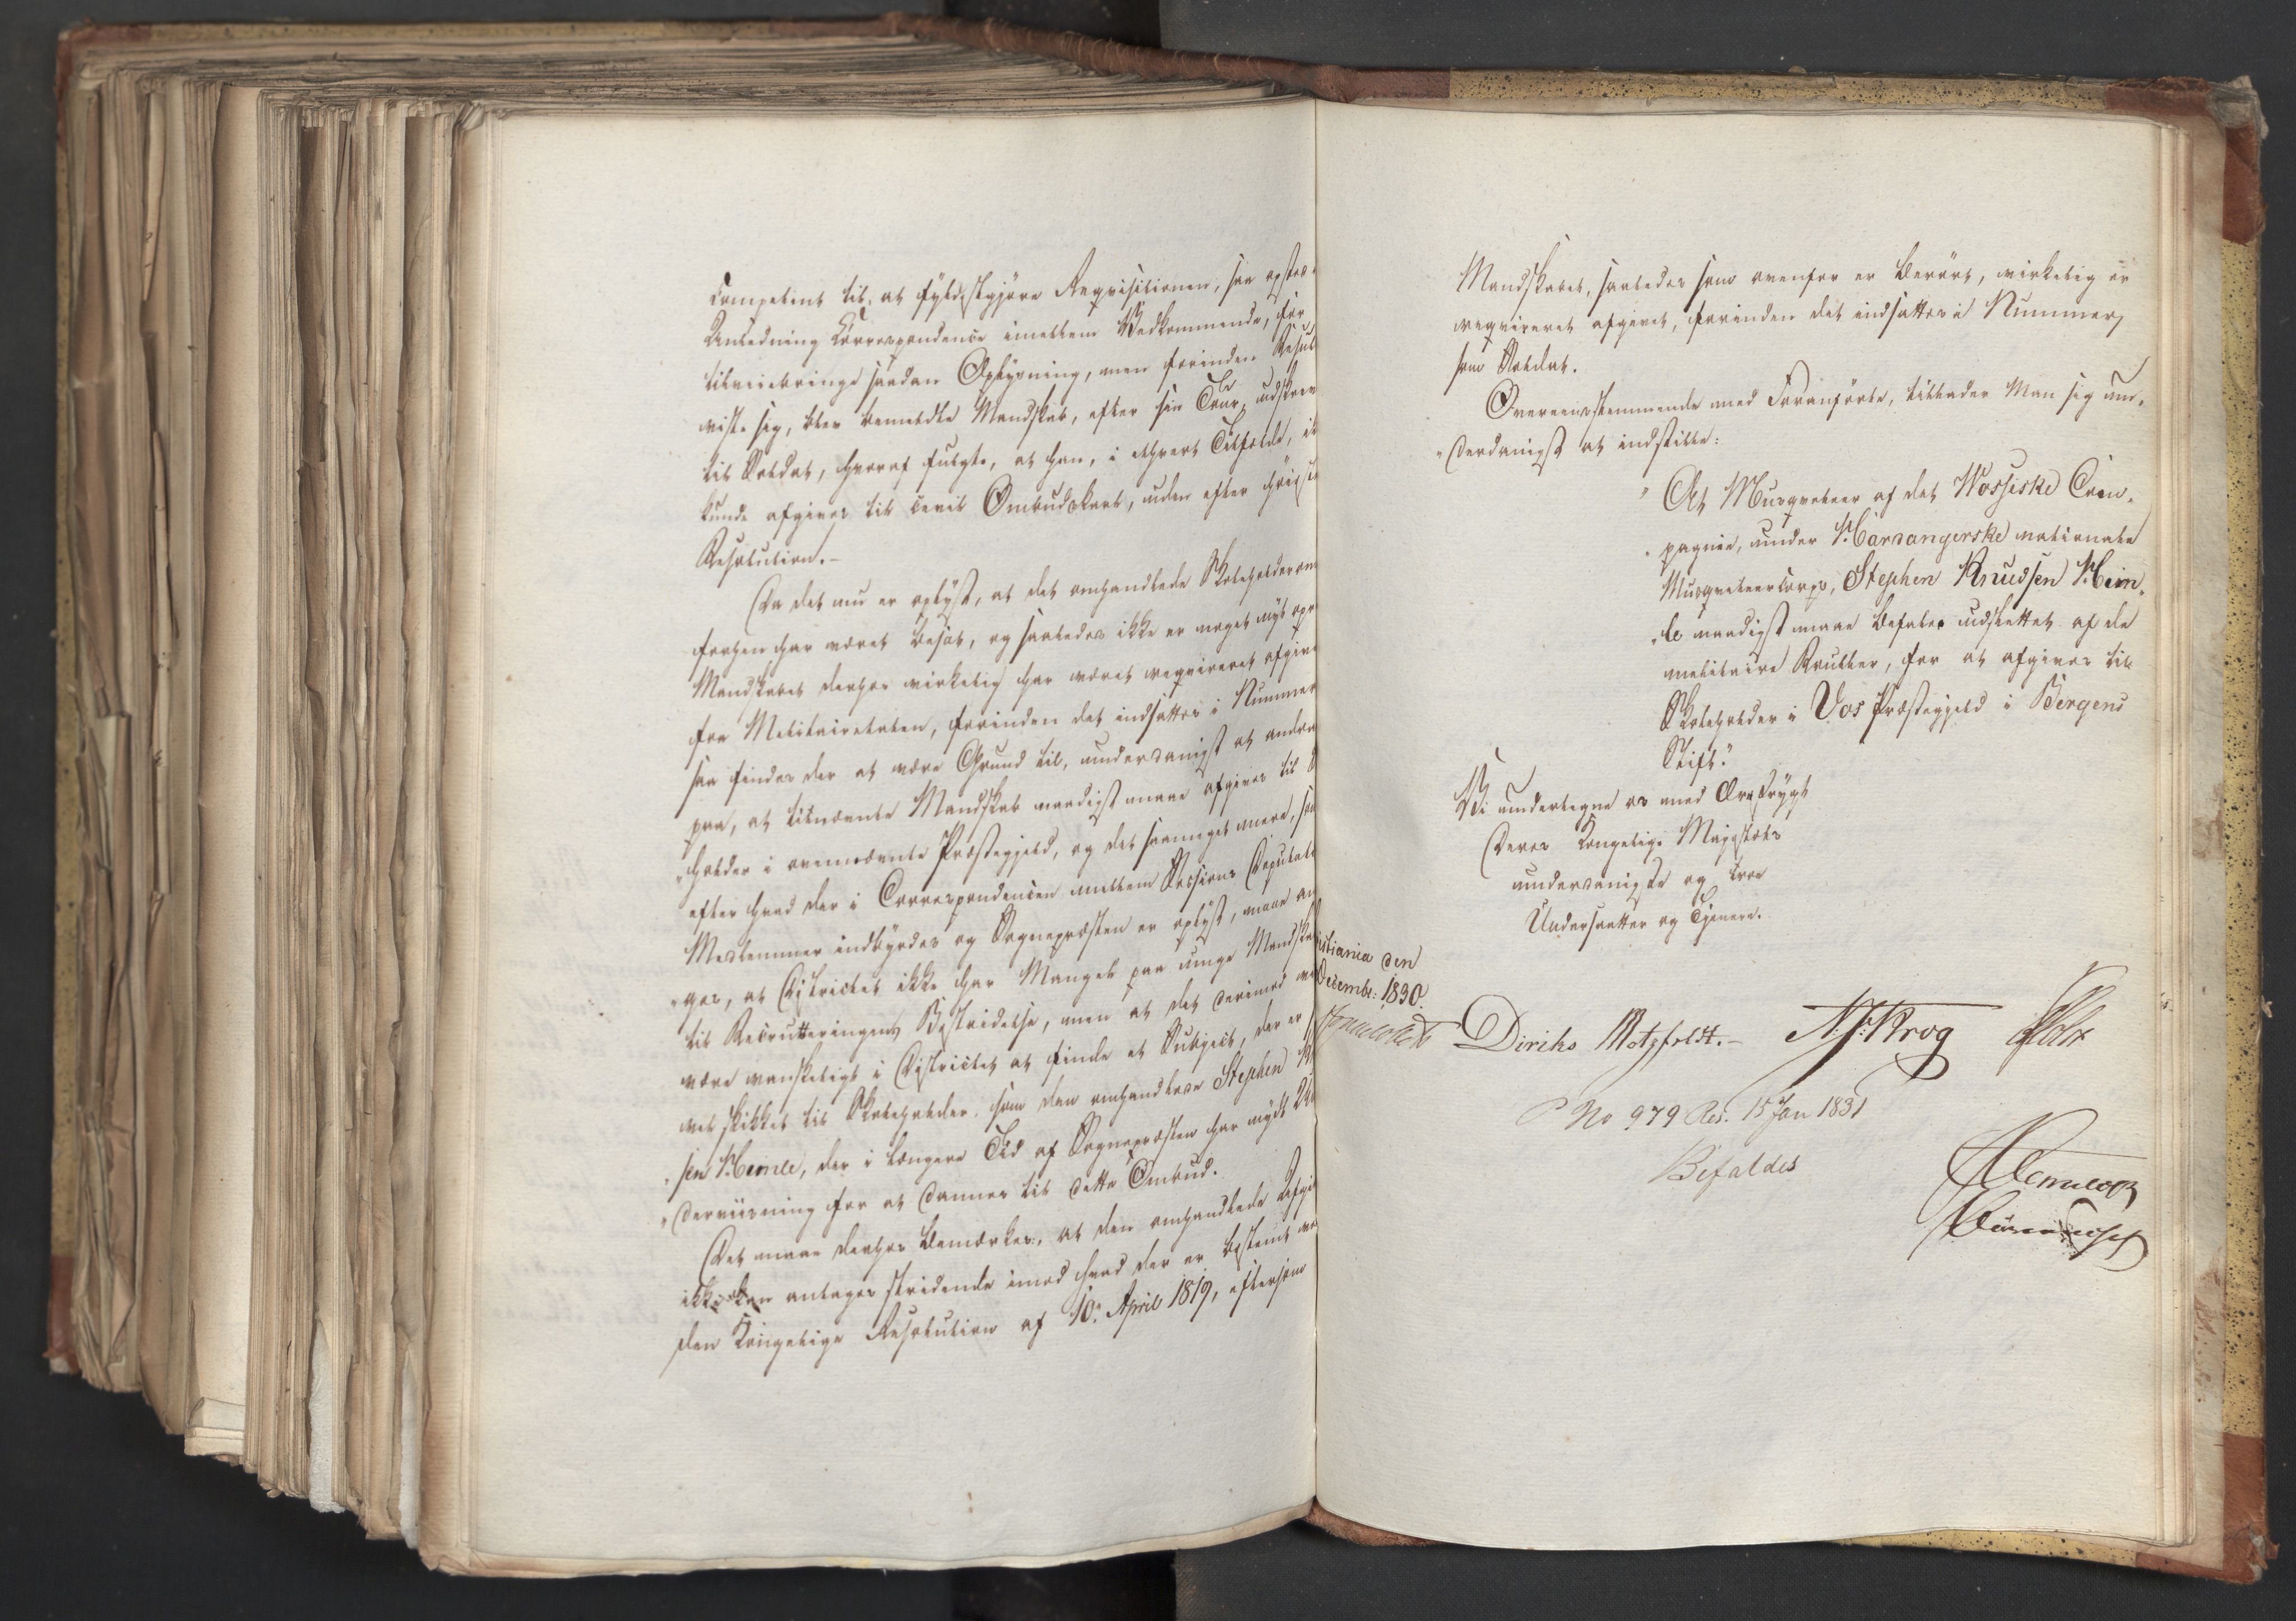 competent til, at fyldestgjøre Reqvisitionen, saa opstod i
Anledning Correspondence imellem Vedkommende, for
tilveiebringe saadan Oplysning, men forinden Resul
viste sig, blev bemeldte Mandskab, efter sin Tour, udskrev
til Soldat, hvoraf fulgte, at han, i ethvert Tilfælde, ik
kunde afgives til civil Ombudskarl, uden efter høieste
Resolution.-
Da det nu er oplyst, at det omhandlede Skoleholderom
forhen har været besat, og saaledes ikke er noget nyt opr
Mandskabet derhos virkelig har været reqvireret afgive
fra Militairetaten, forinden det indsattes i Nummer
saa findes der at være Grund til, underdanigst at andra
paa, at bemeldte Mandskab naadigst maae afgives til S
"holder i ovennævnte Præstegjeld, og det saameget mere, som
efter hvad der i Correspondencen mellem Sessions Deputat
Medlemmer indbyrdes og Sognepræsten er oplyst, maae an
"ges, at Districtet ikke har Mangel paa unge Mandska
til Recrutteringens Bestridelse, men at det derimod vi
være vanskeligt i Districtet at finde et Subject, der er s
vel skikket til Skoleholder, som den omhandlede Stephen K
"sen Himle, der i længere Tid af Sognepræsten har nydt Un
"derviisning for at dannes til dette Ombud.
Det maae derhos bemærkes, at den omhandlede Afgi
ikke kan antages stridende imod hvad der er bestemt ve
den Kongelige Resolution af 10de April 1819, eftersom
Mandskabet, saaledes som ovenfor er berørt, virkelig er
reqvireret afgivet, forinden det indsattes i Nummer
som Soldat.
Overeensstemmende med Foranførte, tillader Man sig un-
"derdanigst at indstille:
"At Musqveteer af det Wossiske Com-
"pagnie, under Hardangerske nationale
Musqveteercorps, Stephen Knudsen Him-
"le naadigst maae befales udslettet af de
militaire Ruller, for at afgives til
Skoleholder i Vos Præstegjeld i Bergens
Stift."
Vi undertegne os med Ærefrygt
Deres Kongelige Majestæts
underdanigste og troe
Undersaatter og Tjenere.
istiania den
Decembr: 1830.
Diriks Motzfeldt.- N.J. Krog Holst
P No 979 Res. 15 Jan 1831
Befaldes